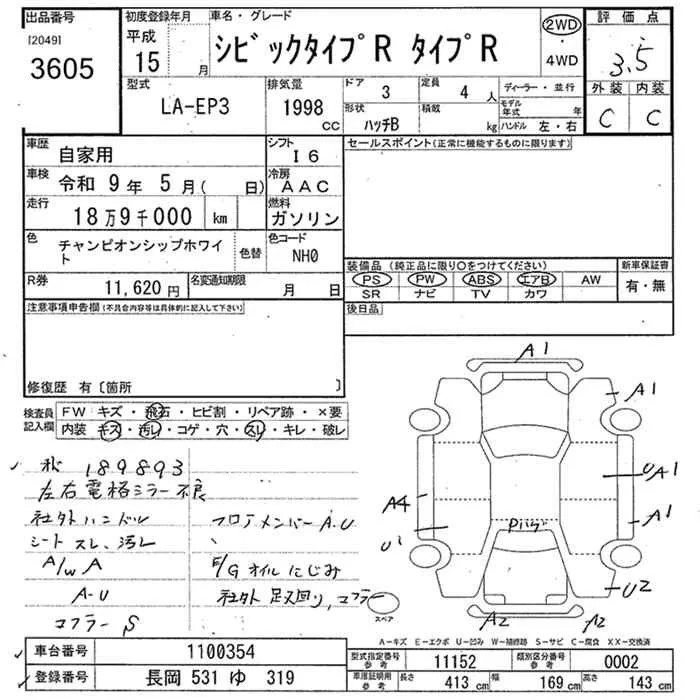 出品番号
[2049]
3605
初度登録年月
平成
15 月
車名・グレード
シビックタイプR タイプR
2WD
・
4WD
評価点
3.5
外装 内装
C C
型式
LA-EP3
排気量
1998 cc
ドア 3
定員 4 人
形状 ハッチB
積載 kg
ディーラー・並行
モデル年式 年
ハンドル 左・右
車歴 自家用
シフト I6
車検 令和 9年 5月( 日)
冷房 AAC
走行 18万9千000 km
燃料 ガソリン
色 チャンピオンシップホワイト
色替
色コード NH0
R券 11,620円
名変通知期限 月 日
セールスポイント(正常に機能するものに限ります)
装備品 (純正品に限り○をつけてください)
PS PW ABS エアB AW
SR ナビ TV カワ
新車保証書
有・無
後日品
注意事項申告欄(不具合内容等は具体的に記入して下さい)
修復歴 有〔箇所 〕
検査員記入欄
FW キズ・飛石・ヒビ割・リペア跡・×要
内装 キズ・汚レ・コゲ・穴・スレ・キレ・破レ
189893
左右電格ミラー不良
社外ハンドル
フロアメンバーA.U
シートスレ、汚レ
A/W A
E/Gオイルにじみ
A-U
社外足廻り、マフラー
マフラーS
A1
A1
UA1
A4
A1
U1
Pハゲ
U2
A2
A2
スペア
A-キズ E-エクボ U-凹み W-補修跡 S-サビ C-腐食 XX-交換済
車台番号 1100354
登録番号 長岡 531 ゆ 319
型式指定番号 参考 11152
類別区分番号 参考 0002
車庫証明用 参考
長さ 413 cm
幅 169 cm
高さ 143 cm